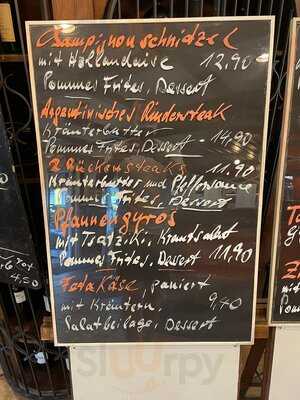 Campignonschnitzel
mit Hollandaise 12,90
Pommes Frites, Dessert
Argentinisches Rindersteak
Kräuterbutter
Pommes Frites, Dessert - 14,90
2 Rückensteaks 11,90
Kräuterbutter und Pfeffersauce
Pommes Frites, Dessert
Pfannengyros
mit Tsatziki, Krautsalat
Pommes Frites, Dessert 11,90
Fetakäse, paniert
mit Kräutern, 9,40
Salatbeilage, Dessert
sluurpy